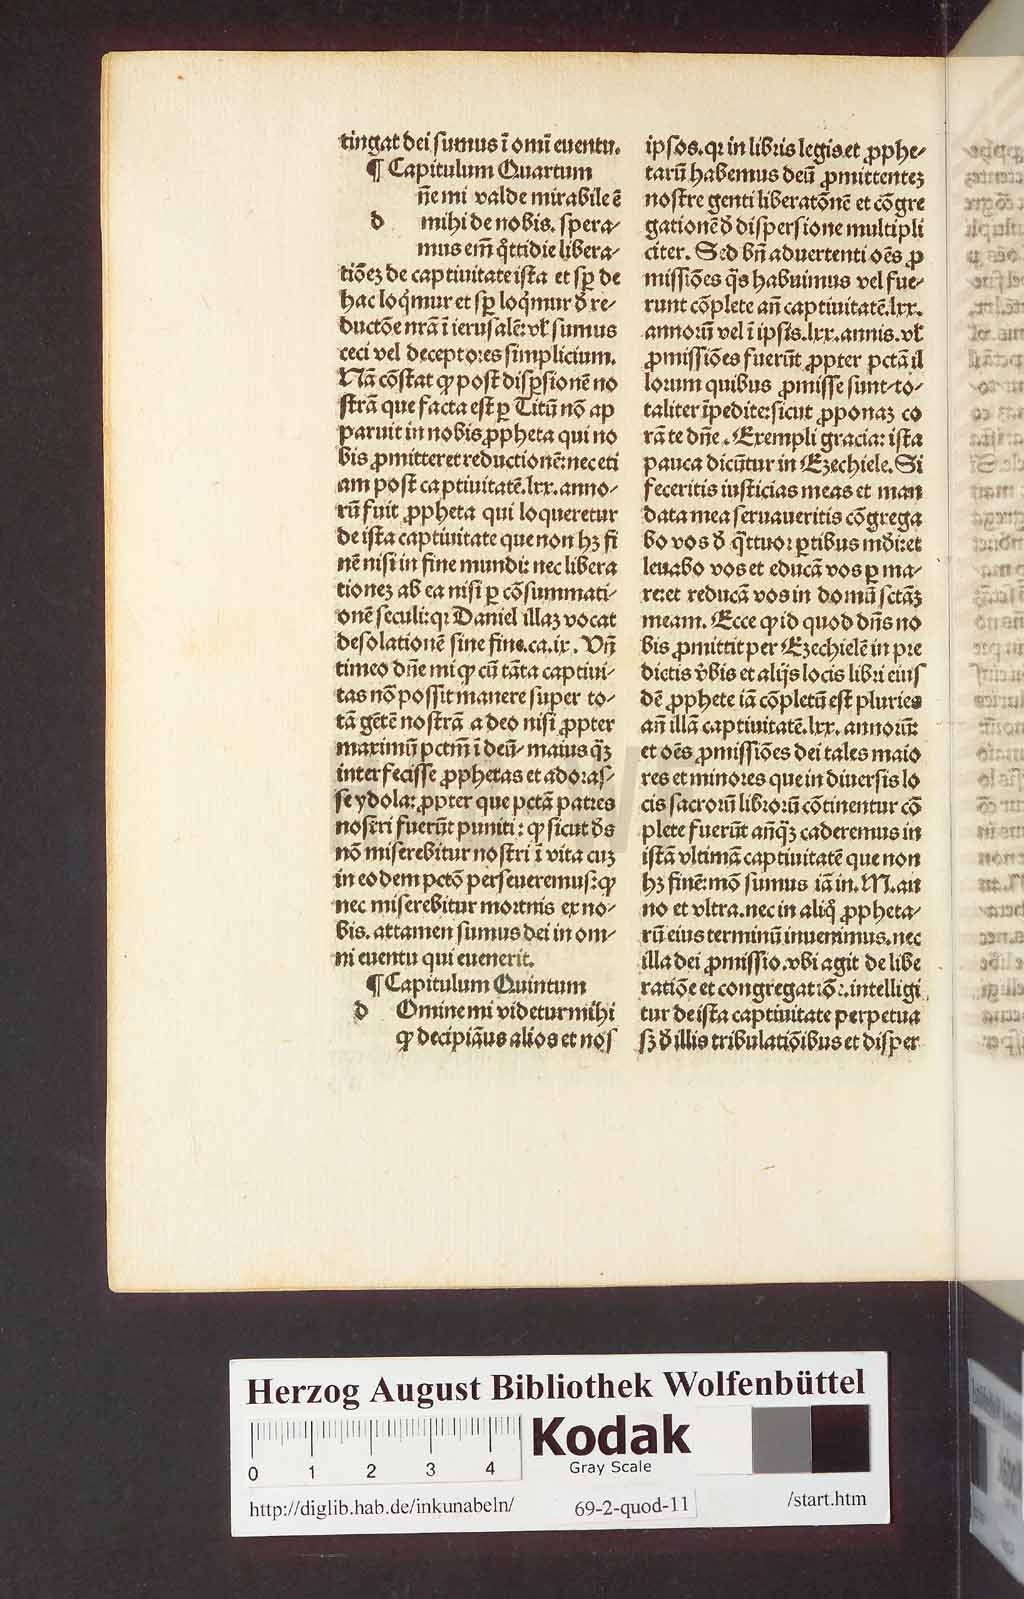 tingat dei sumus ī omī euentu.
¶ Capitulum Quartum
d
n̄e mi valde mirabile ē
mihi de nobis. spera-
mus em̄ q̄ttidie libera-
tiōeʒ de captiuitate ista et sꝑ de
hac loq̄mur et sꝑ loq̄mur ꝺ̄ re-
ductōe nr̄a ī ierusalē: vl̄ sumus
ceci vel deceptores simplicium.
Nā cōstat ꝙ post disꝑsionē no
strā que facta est ꝑ Titū nō ap
paruit in nobis ꝓpheta qui no
bis ꝓmitteret reductionē: nec eti
am post captiuitatē.lxx.anno-
rū fuit ꝓpheta qui loqueretur
de ista captiuitate que non hꝫ fi
nē nisi in fine mundi: nec libera
tioneʒ ab ea nisi ꝑ cōsummati-
onē seculi: qꝛ Daniel illaʒ vocat
desolationē sine fine.ca.ix. Vn̄
timeo dn̄e mi ꝙ cū tāta captiui-
tas nō possit manere super to-
tā gētē nostrā adeo nisi ꝓpter
maximū pctm̄ ī deū- maius q̄ʒ
interfecisse ꝓphetas et adoras-
se ydola: ꝓpter que pctā patres
nostri fuerūt puniti: ꝙ sicut ꝺ̄s
nō miserebitur nostri ī vita cuʒ
in eodem pctō perseueremus: ꝙ
nec miserebitur mortuis ex no-
bis. attamen sumus dei in om-
ni euentu qui euenerit.
¶ Capitulum Quintum
d Omine mi videtur mihi
ꝙ decipiāus alios et nos
ipsos. qꝛ in libris legis et ꝓphe-
tarū habemus deū ꝓmittenteʒ
nostre genti liberatōnē et cōgre
gationē ꝺ̄ dispersione multipli
citer. Sed bn̄ aduertenti oēs ꝓ
missiōes q̄s habuimus vel fue-
runt cōplete an̄ captiuitatē.lxx.
annorū vel ī ipsis.lxx.annis. vl̄
ꝓmissiōes fuerūt ꝓpter pctā il
lorum quibus ꝓmisse sunt- to-
taliter īpedite: sicut ꝓponaʒ co
rā te dn̄e. Exempli gracia: ista
pauca dicūtur in Ezechiele. Si
feceritis iusticias meas et man
data mea seruaueritis cōgrega
bo vos ꝺ̄ q̄ttuor ꝑtibus mūdi: et
leuabo vos et educā vos ꝑ ma-
re: et reducā vos in domū sctāʒ
meam. Ecce ꝙ id quod dn̄s no
bis ꝓmittit per Ezechielē in pre
dictis v̄bis et alijs locis libri eius
dē ꝓphete iā cōpletū est pluries
an̄ illā captiuitatē.lxx. annorū:
et oēs ꝓmissiōes dei tales maio
res et minores que in diuersis lo
cis sacrorū librorū cōtinentur cō
plete fuerūt an̄q̄ʒ caderemus in
istā vltimā captiuitatē que non
hꝫ finē: mō sumus iā in. M. an
no et vltra. nec in aliq̄ ꝓpheta-
rū eius terminū inuenimus. nec
illa dei ꝓmissio. vbi agit de libe
ratiōe et congregatiōe. intelligi
tur de ista captiuitate perpetua
sꝫ ꝺ̄ illis tribulatiōibus et disper
Herzog August Bibliothek Wolfenbüttel
0 1 2 3 4
Kodak
Gray Scale
http://diglib.hab.de/inkunabeln/ 69-2-quod-11 /start.htm